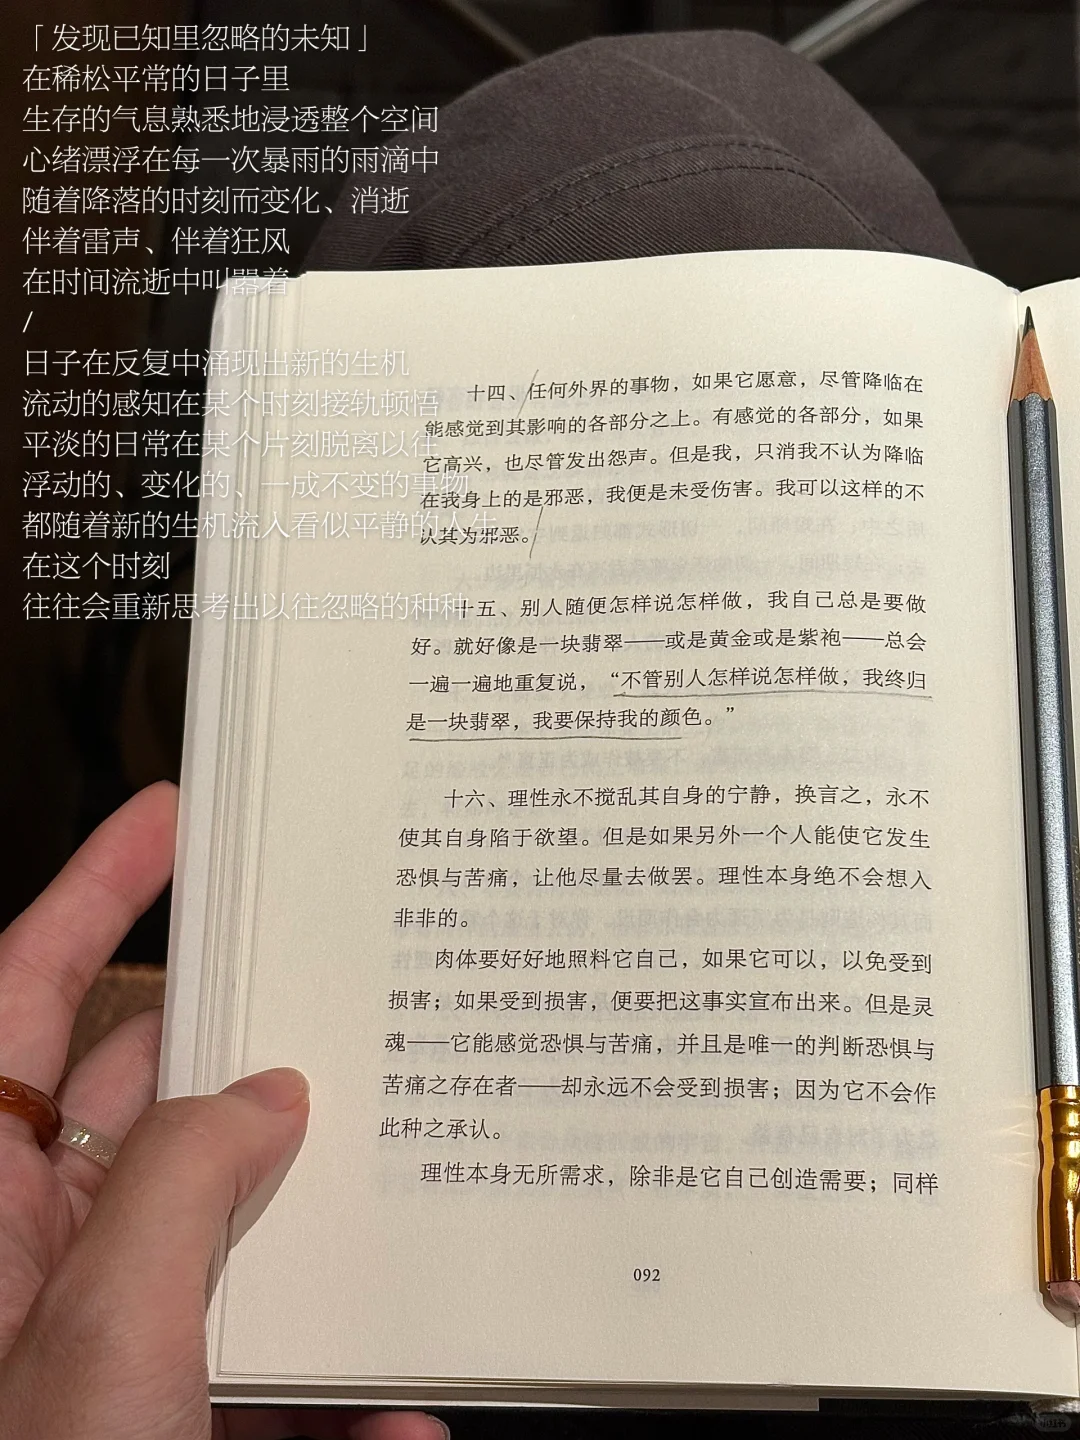 「发现已知里忽略的未知」
在稀松平常的日子里
生存的气息熟悉地浸透整个空间
心绪漂浮在每一次暴雨的雨滴中
随着降落的时刻而变化、消逝
伴着雷声、伴着狂风
在时间流逝中叫嚣着
/
日子在反复中涌现出新的生机
流动的感知在某个时刻接轨顿悟
平淡的日常在某个片刻脱离以往
浮动的、变化的、一成不变的事物
都随着新的生机流入看似平静的人生
在这个时刻
往往会重新思考出以往忽略的种种
十四、任何外界的事物，如果它愿意，尽管降临在
能感觉到其影响的各部分之上。有感觉的各部分，如果
它高兴，也尽管发出怨声。但是我，只消我不认为降临
在我身上的是邪恶，我便是未受伤害。我可以这样的不
认其为邪恶。
十五、别人随便怎样说怎样做，我自己总是要做
好。就好像是一块翡翠——或是黄金或是紫袍——总会
一遍一遍地重复说，“不管别人怎样说怎样做，我终归
是一块翡翠，我要保持我的颜色。”
十六、理性永不搅乱其自身的宁静，换言之，永不
使其自身陷于欲望。但是如果另外一个人能使它发生
恐惧与苦痛，让他尽量去做罢。理性本身绝不会想入
非非的。
肉体要好好地照料它自己，如果它可以，以免受到
损害；如果受到损害，便要把这事实宣布出来。但是灵
魂——它能感觉恐惧与苦痛，并且是唯一的判断恐惧与
苦痛之存在者——却永远不会受到损害；因为它不会作
此种之承认。
理性本身无所需求，除非是它自己创造需要；同样
092